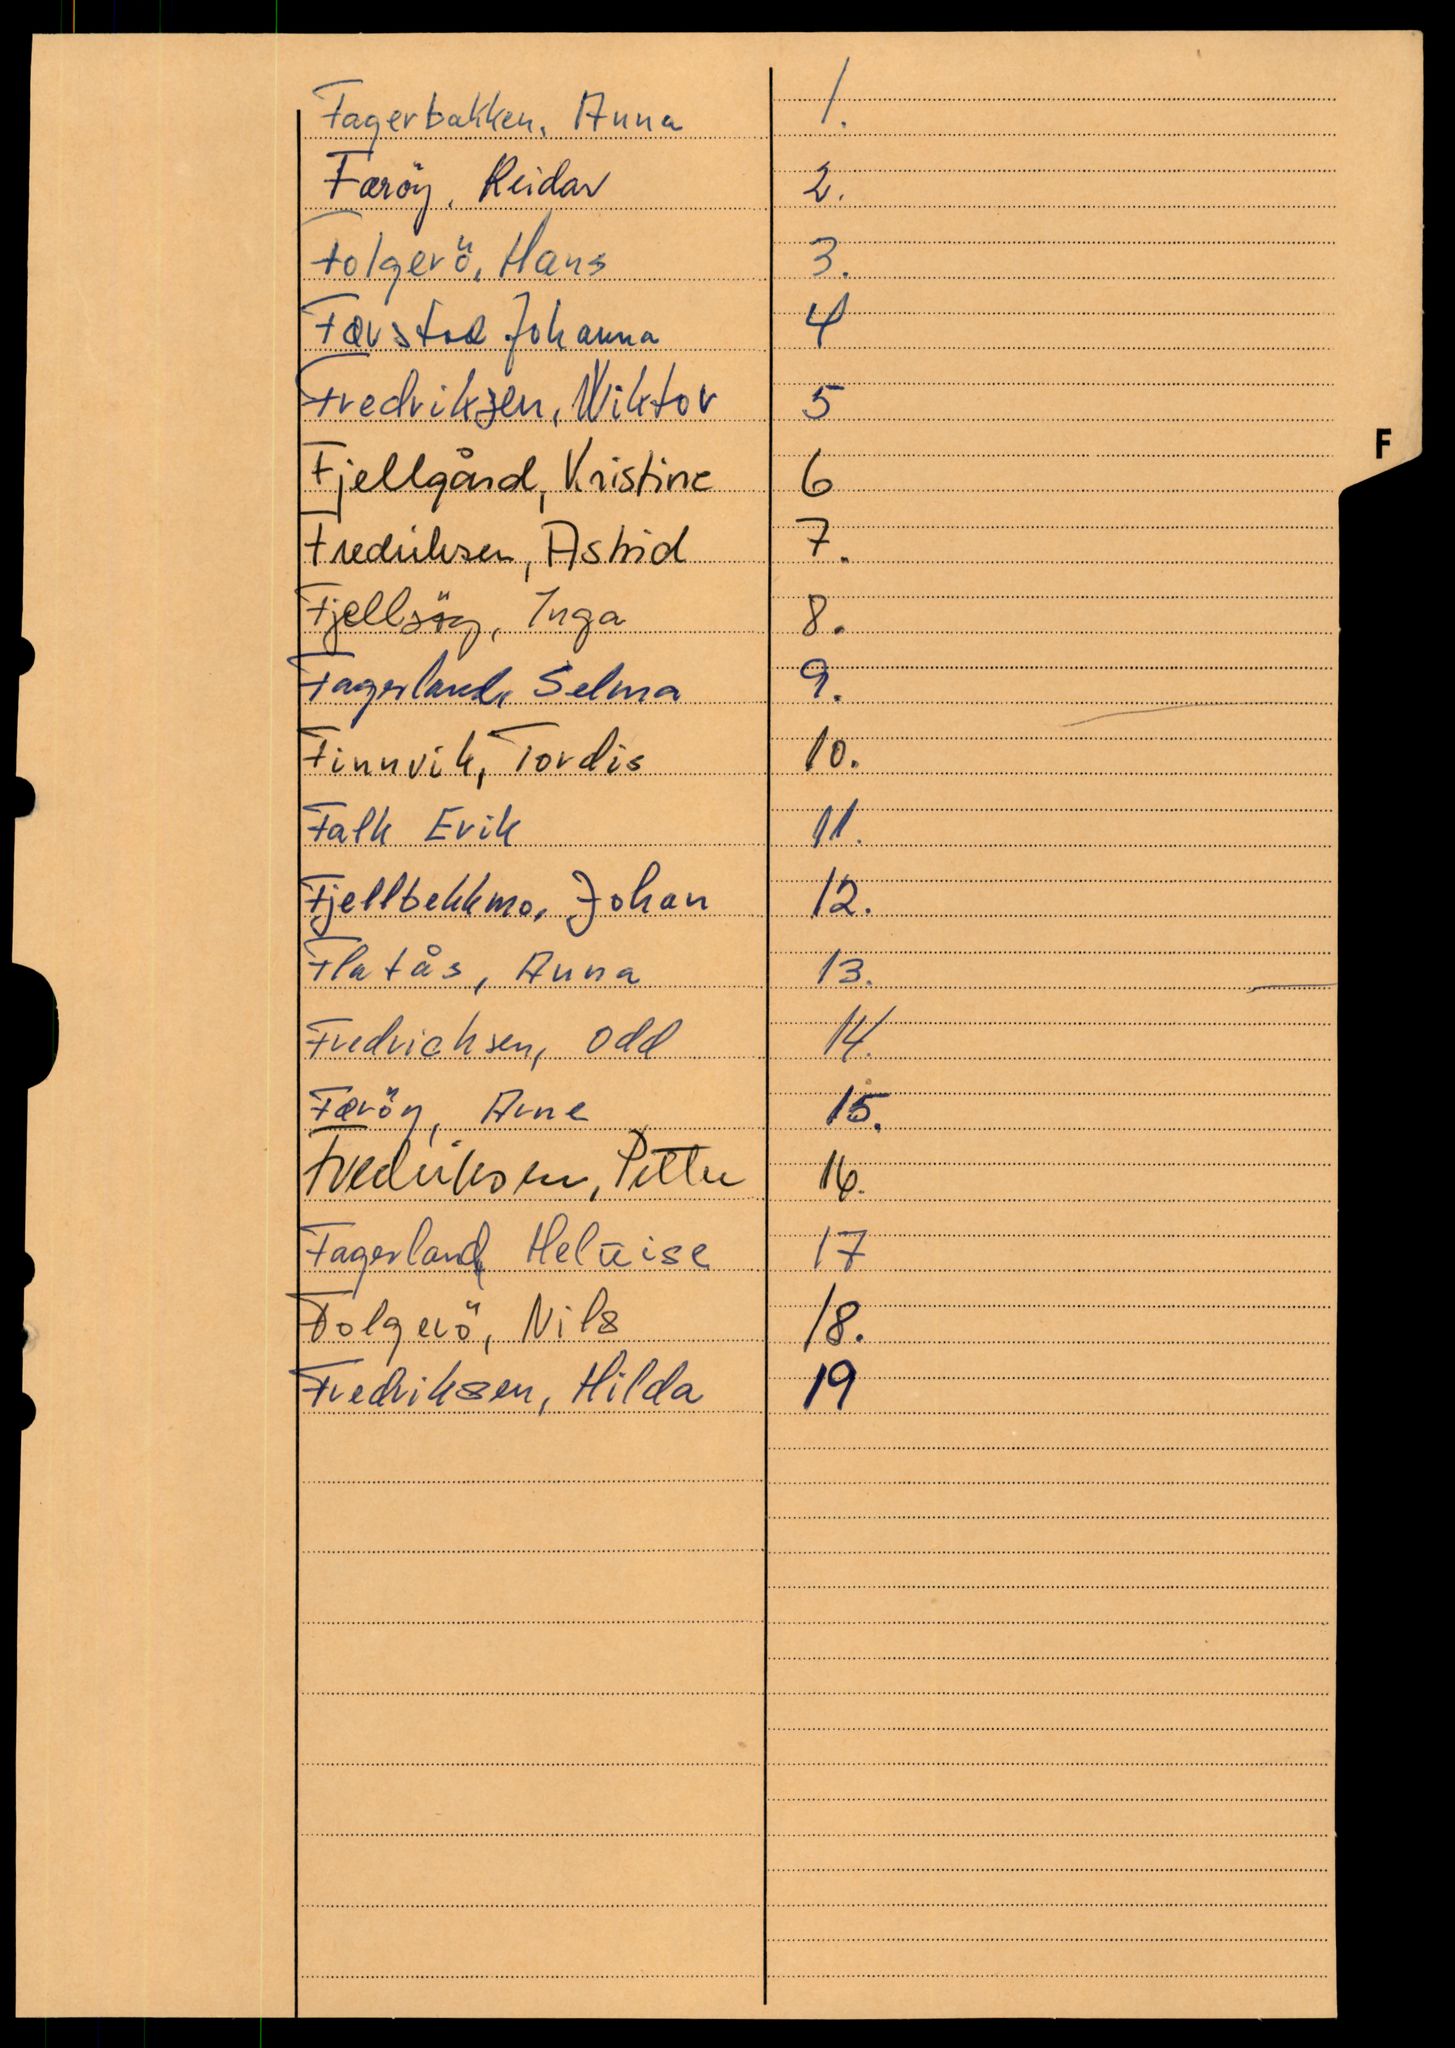 Fagerbakken, Anna 1.
Færöy, Reidar 2.
Folgerö, Hans 3.
Færstad Johanna 4
Fredriksen, Wiktor 5
F
Fjellgård, Kristine 6
Fredriksen, Astrid 7.
Inga 8.
Fagerland, Selma 9.
Finnvik, Tordis 10.
Falk Erik 11.
Fjellbekkmo, Johan 12.
Flatås, Anna 13.
Fredrichsen, Odd 14.
Færöy, Arne 15.
Fredriksen, Petter 16.
Fagerland, 17
Folgerö, Nils 18.
Fredriksen, Hilda 19